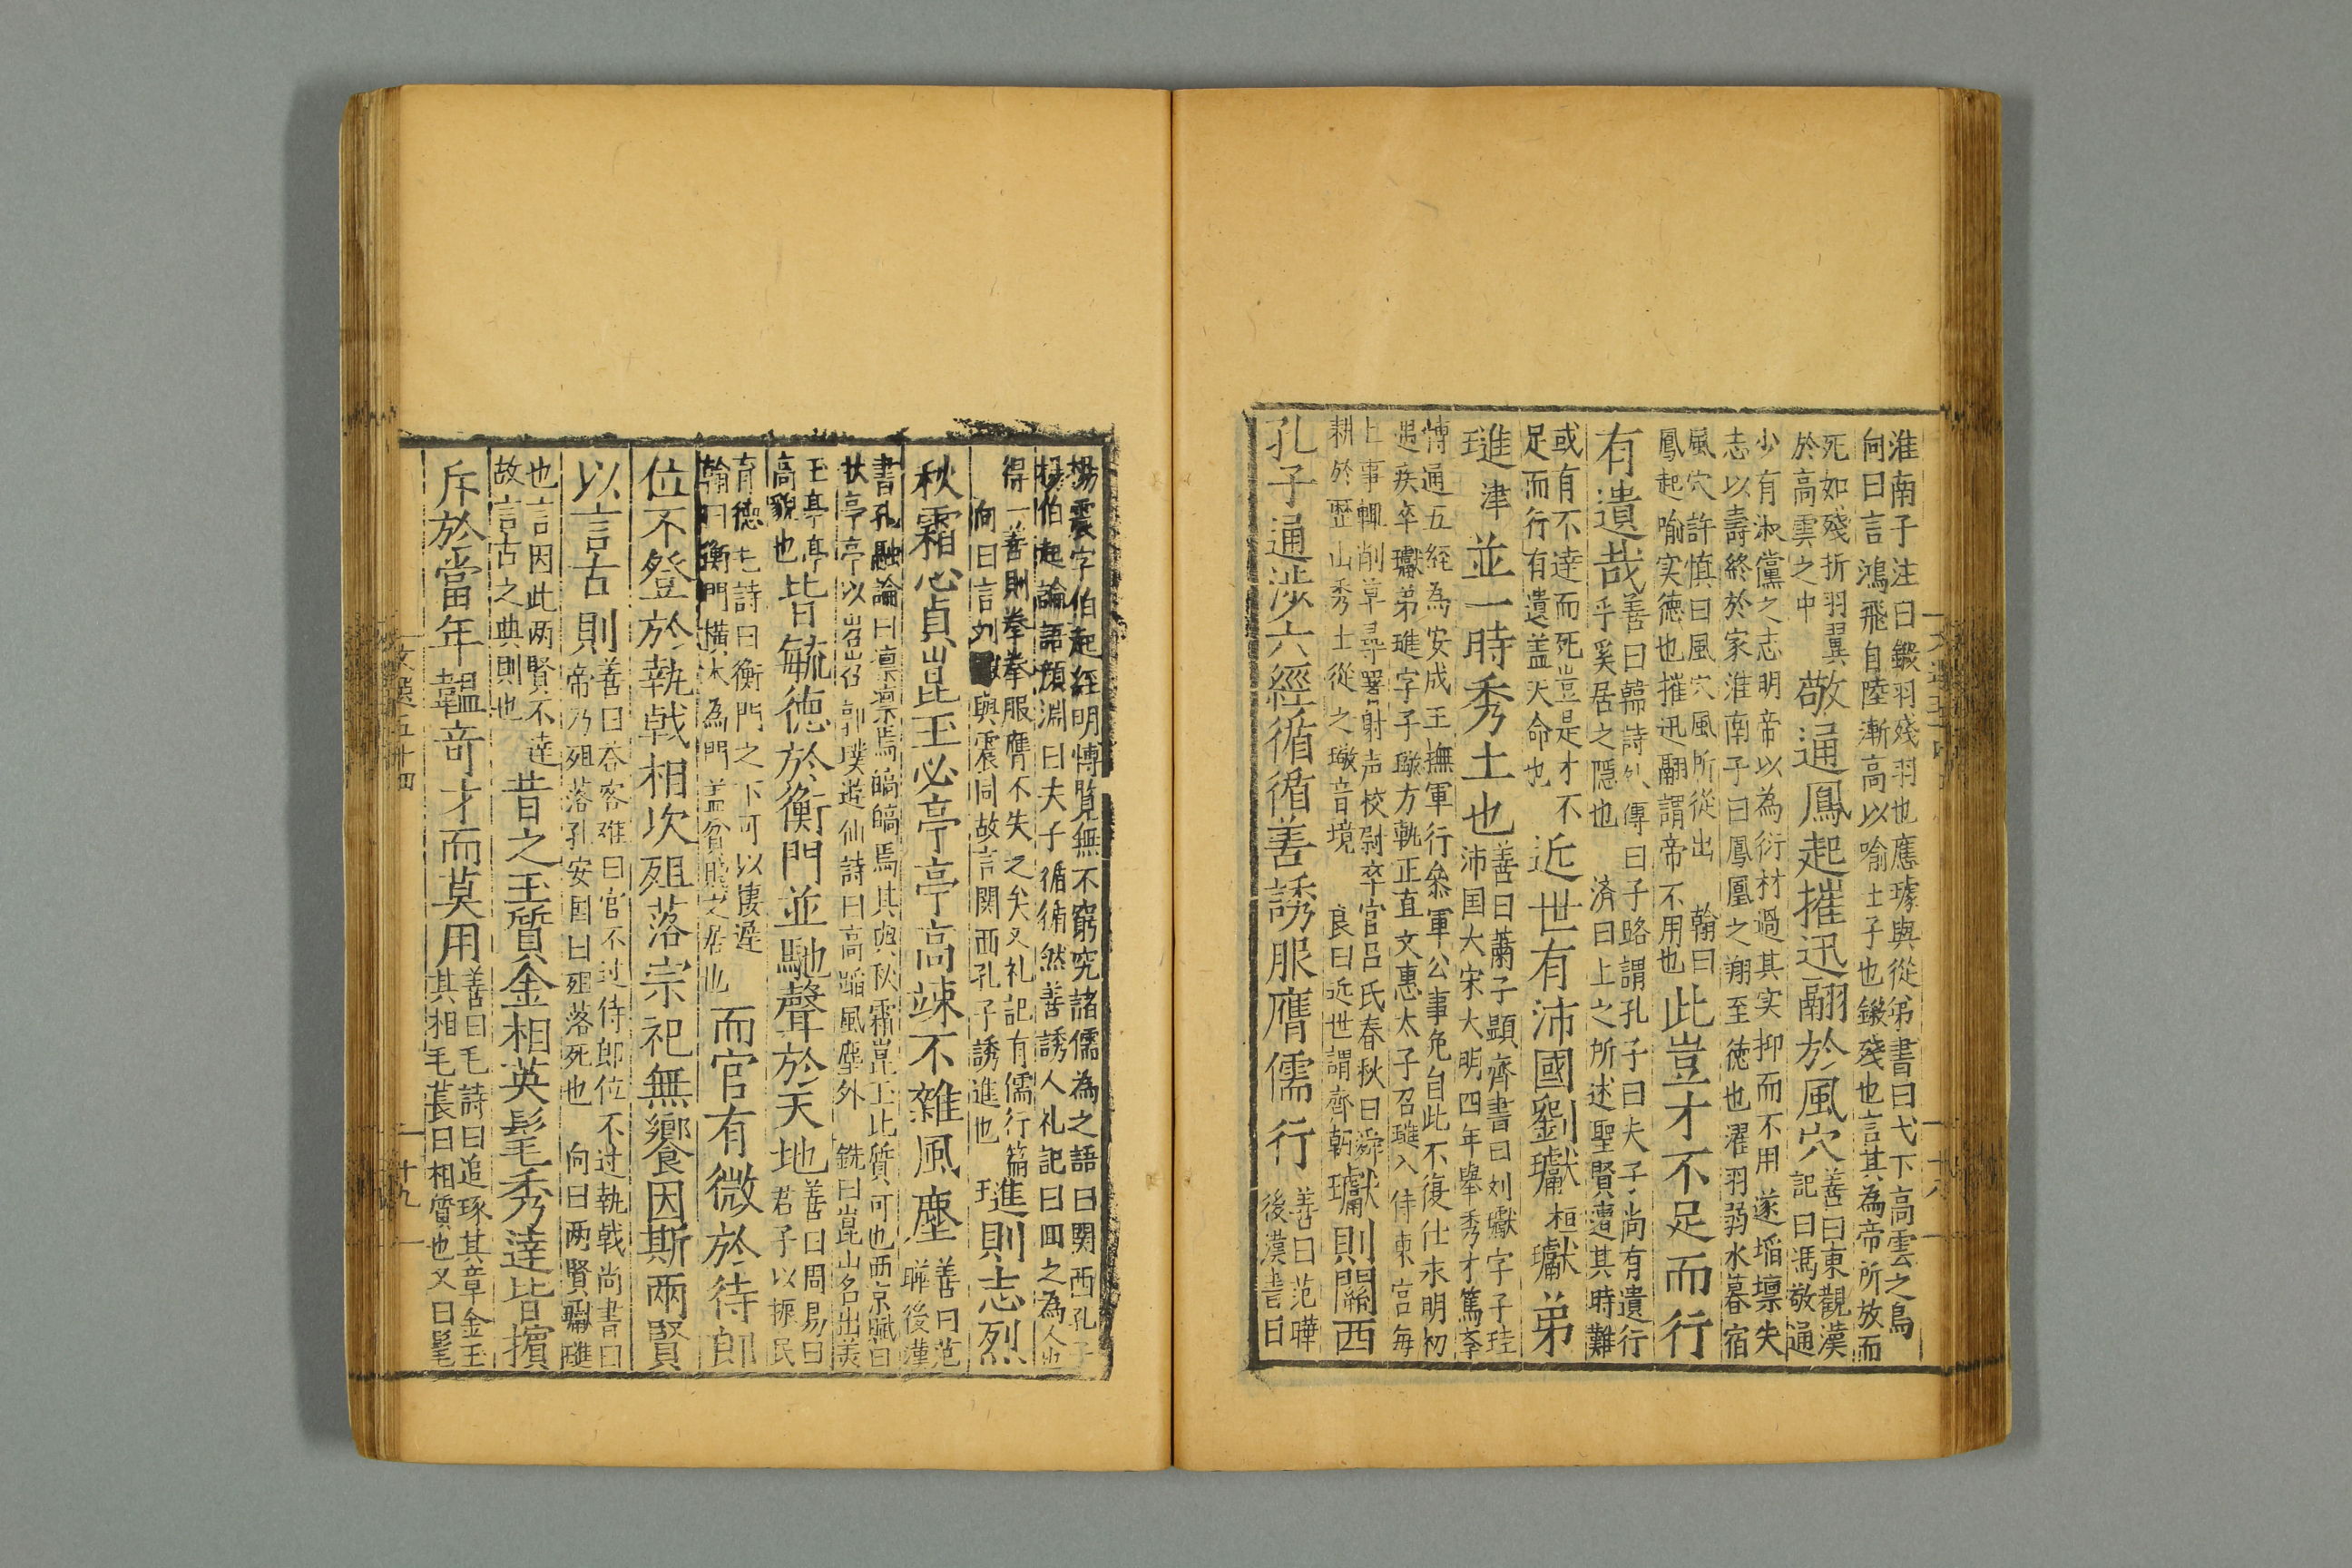 淮南子注曰鎩羽殘羽也應璩與從弟書曰弋下高雲之鳥
向曰言鴻飛自陸漸高以喻士子也鎩殘也言其為帝所放而
死如殘折羽翼
於高雲之中
敬通鳳起摧迅翮於風穴
善曰東觀漢
記曰馮敬通
少有淑黨之志明帝以為衍材過其实抑而不用遂坎壈失
志以壽終於家淮南子曰鳳凰之翔至徳也濯羽弱水暮宿
風穴許慎曰風穴風所從出 翰曰
鳳起喻实徳也摧迅翮謂帝不用也
此豈才不足而行
有遺哉
善曰韓詩外傳曰子路謂孔子曰夫子尚有遺行
乎奚居之隱也 済曰上之所述聖賢遭其時難
或有不達而死豈是才不
足而行有遺盖天命也
近世有沛國劉瓛
桓
瓛弟
璡
津
並一時秀士也
善曰蕭子顕齊書曰刘瓛字子珪
沛国人宋大明四年舉秀才篤孝
博通五経為安成王撫軍行叅軍公事免自此不復仕永明初
遇疾卒瓛弟璡字子璥方軌正直文惠太子召璡入侍東宮毎
上事輒削草尋署射声校尉卒官吕氏春秋曰舜
耕於歴山秀士從之璥音境 良曰近世謂齊朝
瓛則關西
孔子通涉六經循循善誘服膺儒行
善曰范曄
後漢書曰
楊震字伯起経明博覧無不窮究諸儒為之語曰関西孔子
楊伯起論語顔淵曰夫子循循然善誘人礼記曰回之為人也
得一善則拳拳服膺不失之矣又礼記有儒行篇
向曰言刘瓛與震同故言関西孔子誘進也
璡則志烈
秋霜心貞崑玉必亭亭高竦不雜風塵
善曰范
曄後漢
書孔融論曰凛凛焉皜皜焉其與秋霜崑玉比質可也西京賦曰
状亭亭以岧岧郭璞遊仙詩曰高蹈風塵外 銑曰崑山名出美
玉亭亭
高貌也
皆毓徳於衡門並馳聲於天地
善曰周易曰
君子以振民
育徳毛詩曰衡門之下可以棲遅
翰曰衡門横木為門盖貧賤之居也
而官有微於待郎
位不登於執戟相次殂落宗祀無饗因斯兩賢
以言古則
善曰荅客難曰官不过侍郎位不过執戟尚書曰
帝乃殂落孔安国曰殂落死也 向曰两賢瓛璡
也言因此两賢不達
故言古之典則也
昔之玉質金相英髦秀達皆擯
斥於當年韞奇才而莫用
善曰毛詩曰追琢其章金玉
其相毛萇曰相質也又曰髦
文選五十四
十九
十八